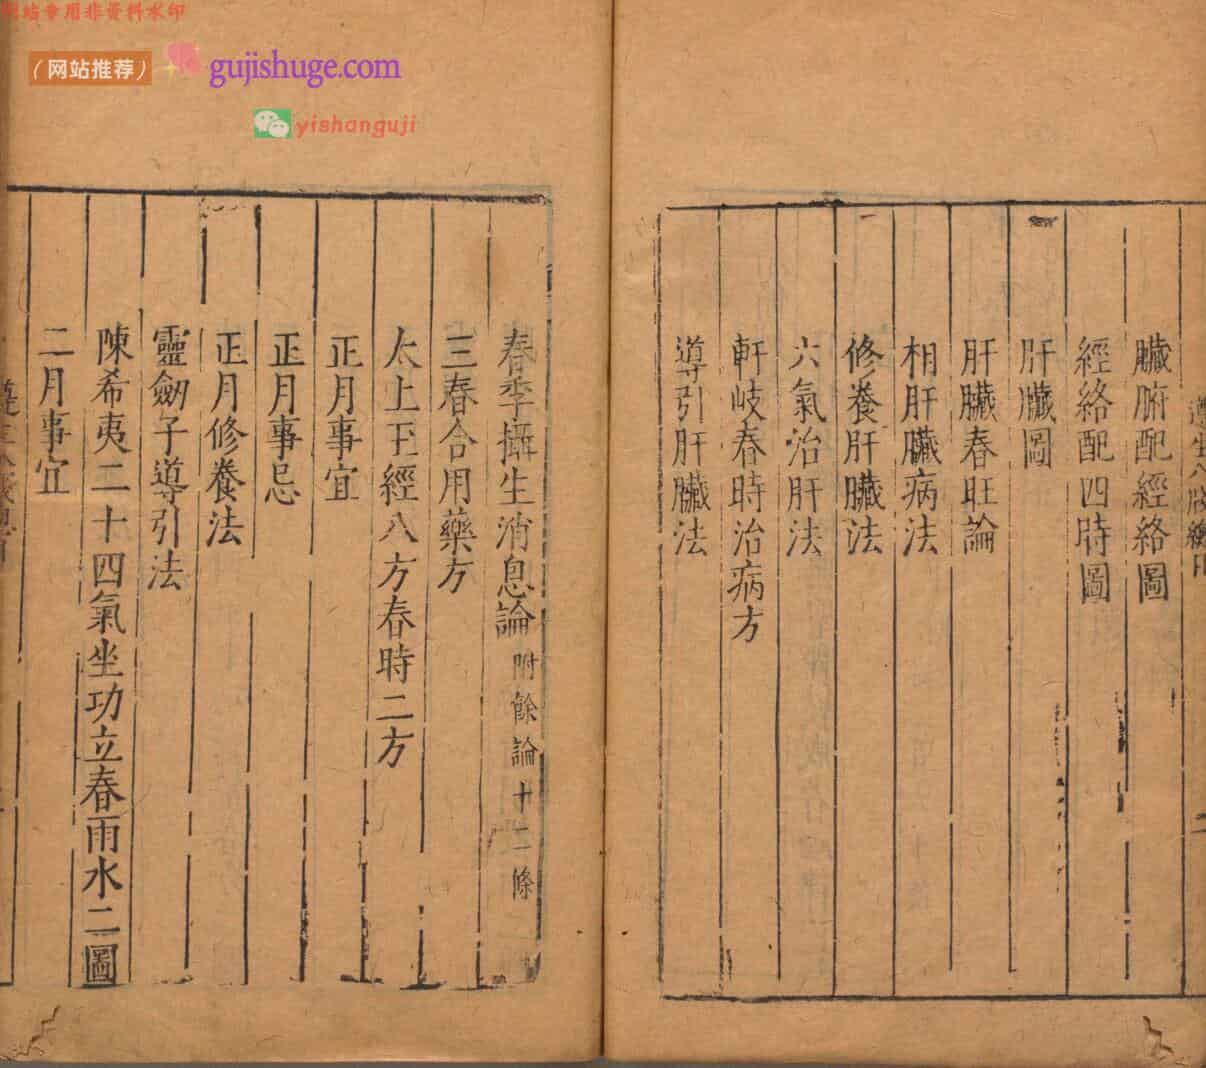 网站专用非资料水印
（网站推荐） gujishuge.com
yishanguji
遵生八牋總目
二
臟腑配經絡圖
經絡配四時圖
肝臟圖
肝臟春旺論
相肝臟病法
修養肝臟法
六氣治肝法
軒岐春時治病方
導引肝臟法
春季攝生消息論 附餘論十二條
三春合用藥方
太上玉經八方春時二方
正月事宜
正月事忌
正月修養法
靈劒子導引法
陳希夷二十四氣坐功立春雨水二圖
二月事宜